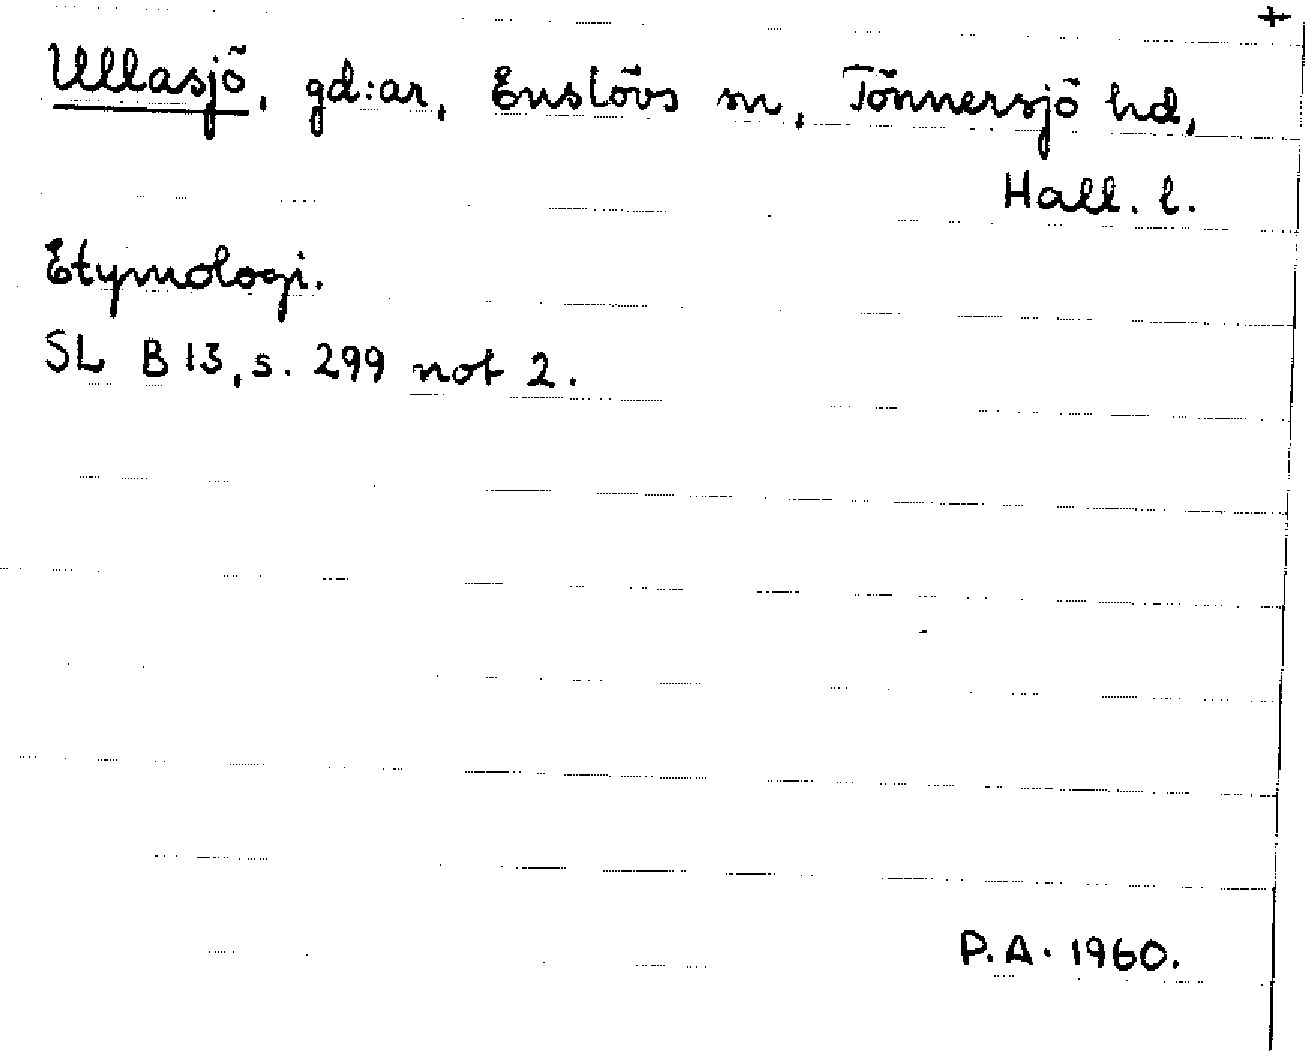 +
Ullasjö, gd:ar, Enslövs sn, Tönnersjö hd,
Hall. l.
Etymologi.
SL B 13, s. 299 not 2.
P.A. 1960.